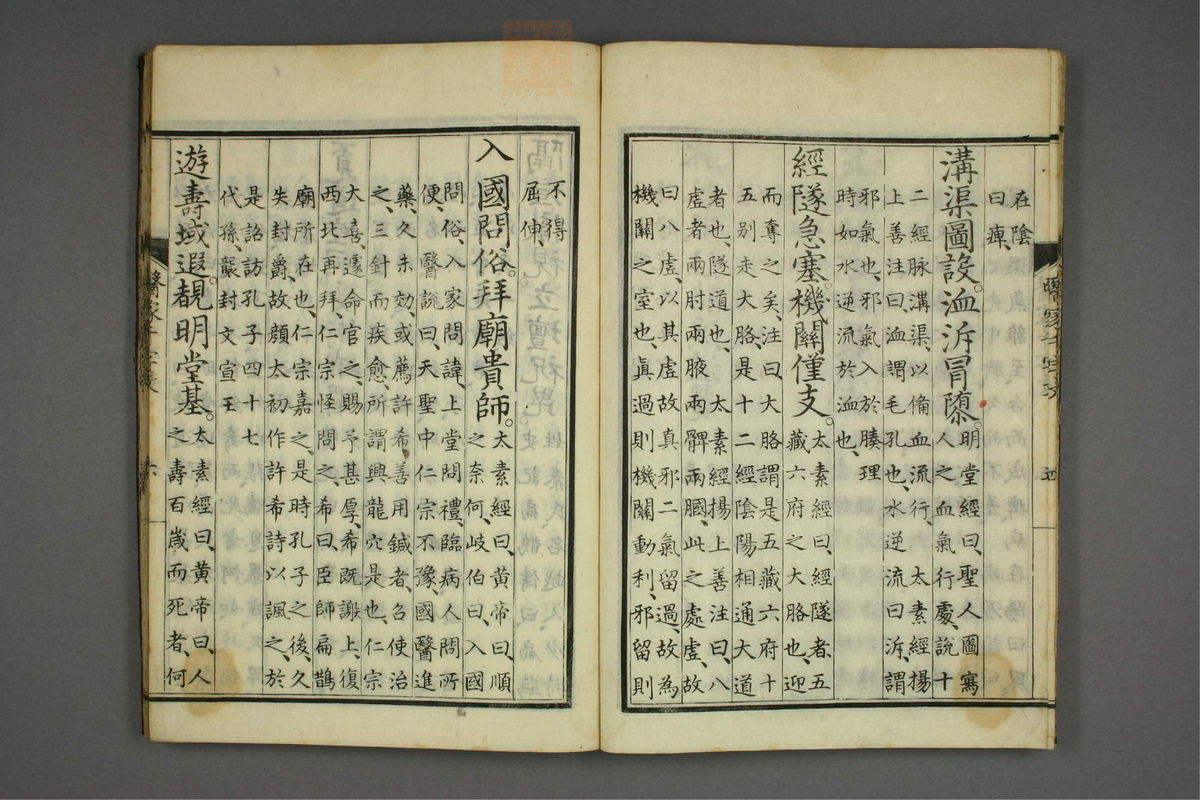 在陰
曰痺、
溝渠圖設。洫泝冒隟。
明堂經曰、聖人圖寫
人之血氣行處、說十
二經脉溝渠、以備血流行、太素經揚
上善注曰、洫謂毛孔也、水逆流曰泝、謂
邪氣也、邪氣入於腠理
時如水逆流於洫也、
經隧急塞。機關僅支。
太素經曰、經隧者、五
藏六府之大胳也、迎
而奪之矣、注曰、大胳謂是五藏六府十
五别走大胳、是十二經陰陽相通大道
者也、隧道也、太素經揚上善注曰、八
虛者、兩肘兩腋兩髀兩膕、此之處虛、故
曰八虛、以其虛故真邪二氣留過、故為
機關之室也、真過則機關動利、邪留則
不得
屈伸、
入國問俗。拜廟貴師。
太素經曰、黃帝曰、順
之奈何、岐伯曰、入國
問俗、入家問諱、上堂問禮、臨病人問所
便、醫說曰、天聖中仁宗不豫、國醫進
藥、久未効、或薦許希善用鍼者、召使治
之、三針而疾愈、所謂興龍穴是也、仁宗
大喜、遽命官之、賜予甚厚、希既謝上、復
西北再拜、仁宗怪問之、希曰、臣師扁鵲
廟所在也、仁宗嘉之、是時孔子之後、久
失封爵、故顏太初作許希詩以諷之、於
是詔訪孔子四十七
代孫、襲封文宣王
遊壽域遐。覩明堂基。
太素經曰、黃帝曰、人
之壽百歲而死者、何